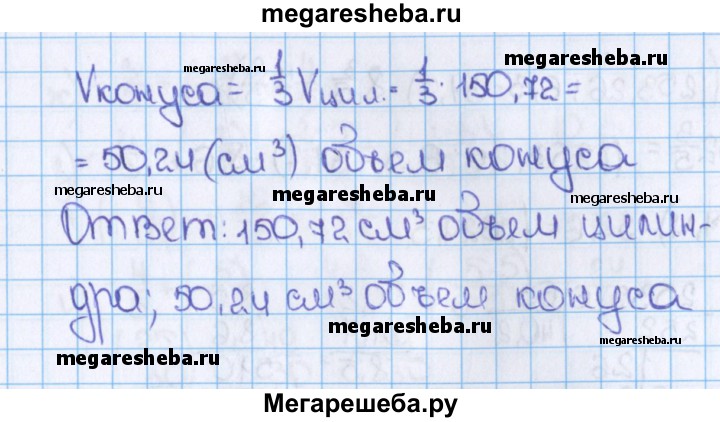 megaresheba.ru
megaresheba.ru
megaresheba.ru
Vконуса = 1/3 Vцил. = 1/3 · 150,72 =
= 50,24 (см³) объем конуса
megaresheba.ru
megaresheba.ru
megaresheba.ru
Ответ: 150,72 см³ объем цилин-
дра; 50,24 см³ объем конуса
megaresheba.ru
megaresheba.ru
megaresheba.ru
Мегарешеба.ру